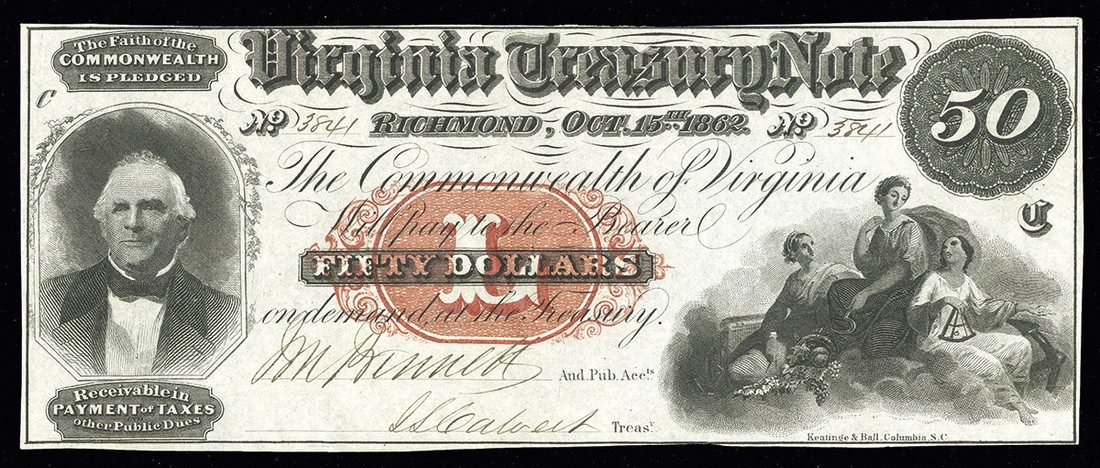 The Faith of the
COMMONWEALTH
IS PLEDGED
Virginia Treasury Note
50
C
No 3841 RICHMOND, OCT. 15TH 1862. No 3841
The Commonwealth of Virginia
C
Will Pay to the Bearer
L
FIFTY DOLLARS
on demand, at the Treasury.
Aud. Pub. Accts
Receivable in
PAYMENT of TAXES
other Public Dues
J S Calvert Treasr
Keatinge & Ball, Columbia, S.C.